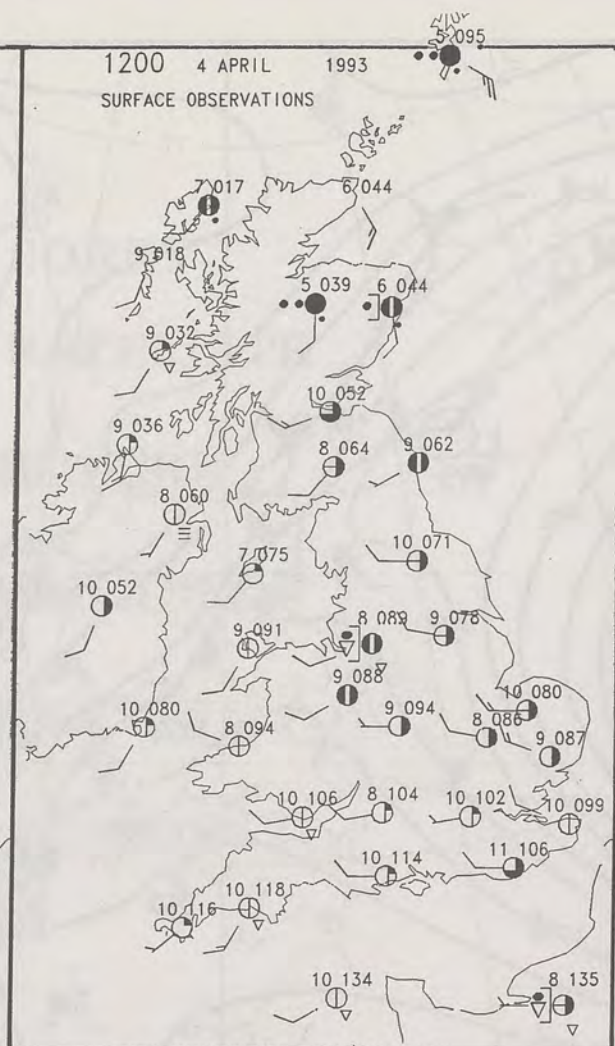 5 095
1200 4 APRIL 1993
SURFACE OBSERVATIONS
7 017
6 044
9 018
5 039
6 044
9 032
10 052
9 036
8 064
9 062
8 060
7 075
10 071
10 052
9 091
8 089
9 078
9 088
10 080
10 080
8 094
9 094
8 086
9 087
10 106
8 104
10 102
10 099
10 114
11 106
10 116
10 118
10 134
8 135